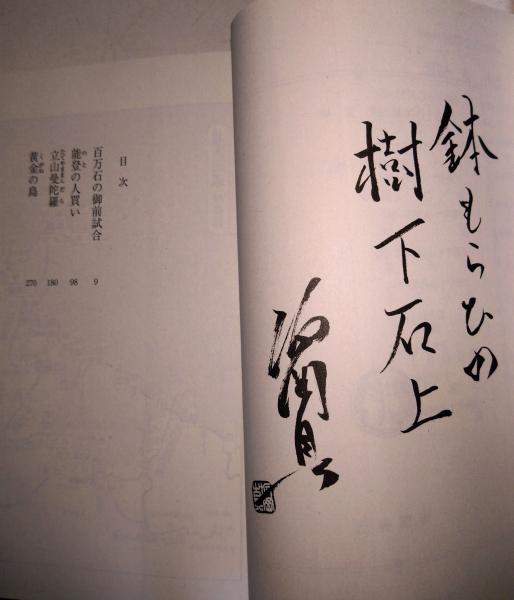 鉢もらひの
樹下石上
目次
百万石の御前試合 9
能登の人買い 98
立山曼陀羅 180
黄金の島 270